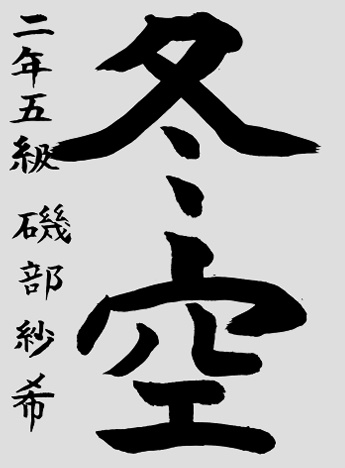 冬空
二年五級 磯部紗希